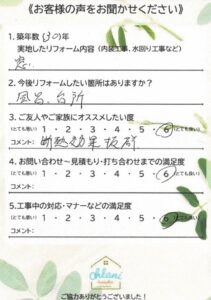 《お客様の声をお聞かせください》
1.築年数(30)年
実地したリフォーム内容(内装工事、水回り工事など)
窓
2.今後リフォームしたい箇所はありますか?
風呂、台所
3.ご友人やご家族にオススメしたい度
(とても悪い) 1・2・3・4・5・6 (とても良い)
コメント: 断熱効果抜群
4.お問い合わせ〜見積もり・打ち合わせまでの満足度
(とても悪い) 1・2・3・4・5・6 (とても良い)
コメント:
5.工事中の対応・マナーなどの満足度
(とても悪い) 1・2・3・4・5・6 (とても良い)
コメント:
ohlani
ご協力ありがとうございました!